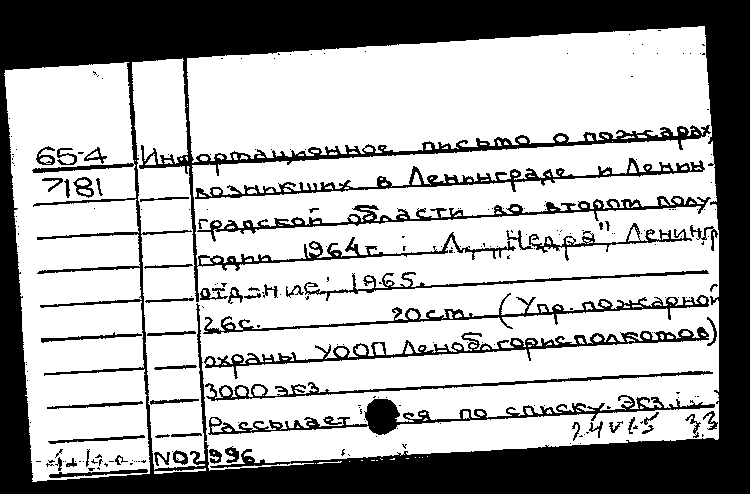 65-4 Информационное письмо о пожарах,
7181 возникших в Ленинграде и Ленин-
градской области во втором полу-
годии 1964г. : Л., "Недра", Ленингр
отд-ние, 1965.
26с. 20см. (Упр. пожарной
охраны УООП Леноблгорисполкомов)
3000 экз.
Рассылается по списку. Экз.
24 V 65 33
N02996.